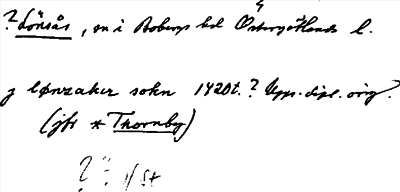 ? Lönsås, sn i Bobergs hd Östergötlands l.
j lønzaker sokn 1420t.? Upps. dipl. orig.
(jfr * Thornby)